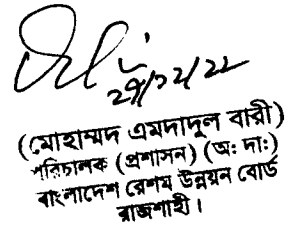 (মোহাম্মদ এমদাদুল বারী)
পরিচালক (প্রশাসন) (অ: দা:)
বাংলাদেশ রেশম উন্নয়ন বোর্ড
রাজশাহী।